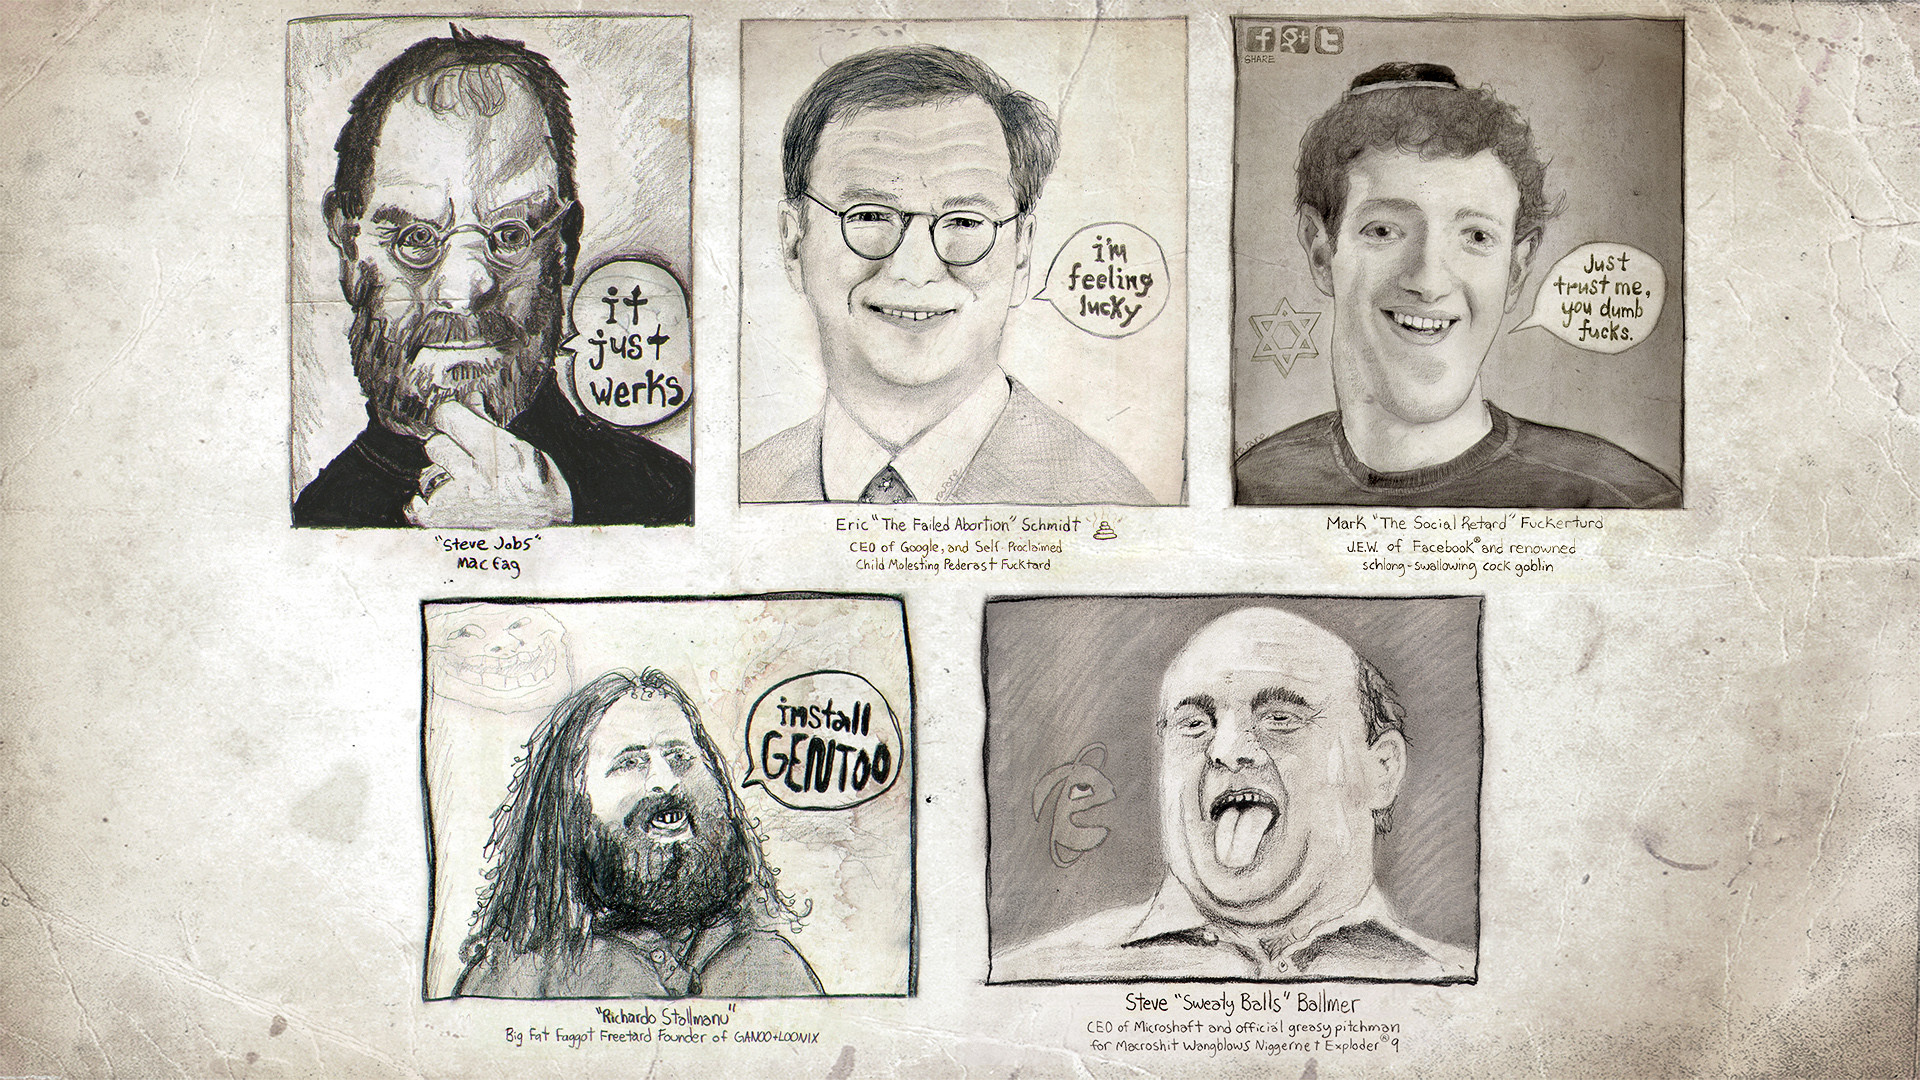 it
just
werks
"Steve Jobs"
Mac Fag
i'm
feeling
lucky
Eric "The Failed Abortion" Schmidt
CEO of Google, and Self-Proclaimed
Child Molesting Pederast Fucktard
SHARE
Just
trust me,
you dumb
fucks.
Mark "The Social Retard" Fuckerturd
J.E.W. of Facebook® and renowned
schlong-swallowing cock goblin
install
GENTOO
"Richardo Stallmanu"
Big Fat Faggot Freetard Founder of GANOO+LOONIX
Steve "Sweaty Balls" Ballmer
CEO of Microshaft and official greasy pitchman
for Macroshit Wangblows Niggernet Exploder® 9